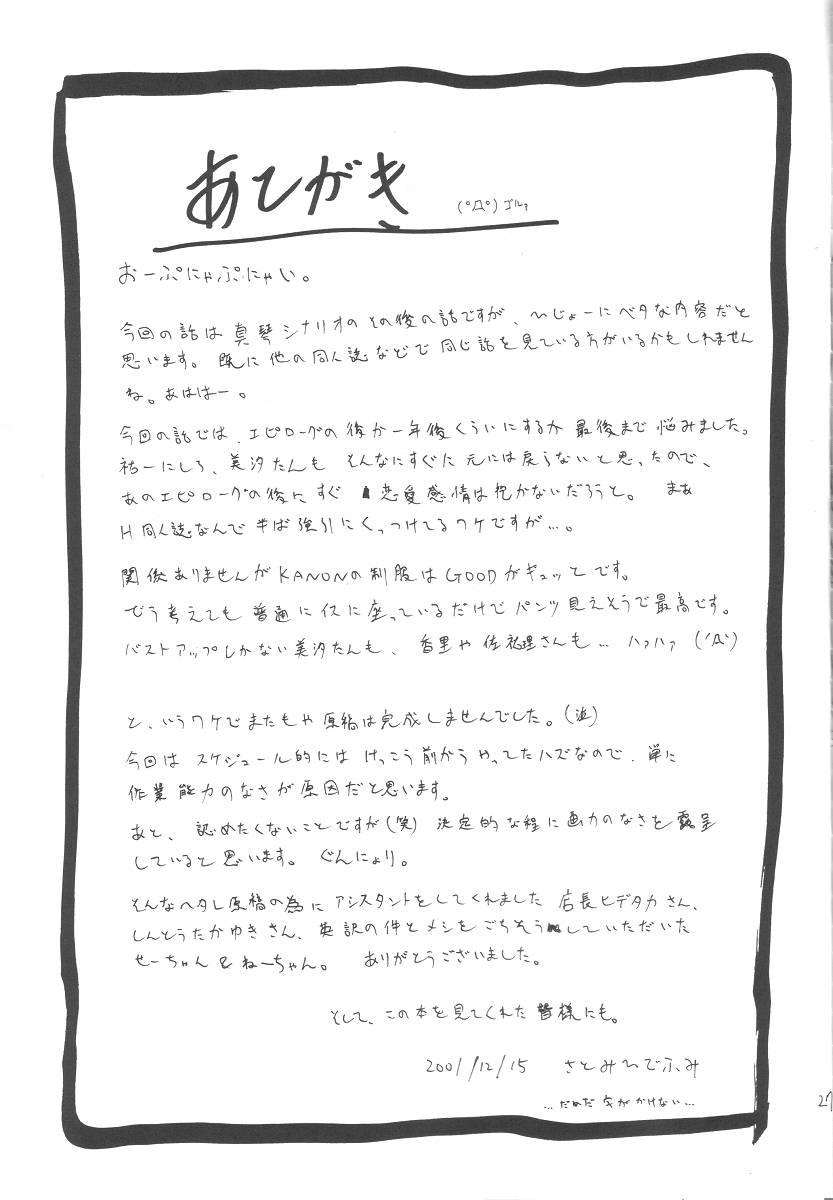 あとがき (゚Д゚)ゴルァ
おーぷにゃぷにゃい。
今回の話は真琴シナリオのその後の話ですが、ひじょーにベタな内容だと
思います。既に他の同人誌などで同じ話を見ている方がいるかもしれません
ね。あははー。
今回の話では、エピローグの後か一年後くらいにするか最後まで悩みました。
祐一にしろ、美汐たんも そんなにすぐに元には戻らないと思ったので、
あのエピローグの後にすぐ 恋愛感情は抱かないだろうと。 まあ
H同人誌なんで半ば強引にくっつけてるワケですが…。
関係ありませんがKANONの制服はGOODがギュッとです。
どう考えても普通にイスに座っているだけでパンツ見えそうで最高です。
バストアップしかない美汐たんも、香里や佐祐理さんも… ハァハァ (´Д`)
と、いうワケでまたもや原稿は完成しませんでした。(泣)
今回はスケジュール的にはけっこう前からやってたハズなので、単に
作業能力のなさが原因だと思います。
あと、認めたくないことですが(笑) 決定的な程に画力のなさを露呈
していると思います。ぐんにょり。
そんなヘタレ原稿の為にアシスタントをしてくれました 店長ヒデタカさん、
しんとうたかゆきさん、英訳の件とメシをごちそうしていただいた
せーちゃん&ねーちゃん。 ありがとうございました。
そして、この本を見てくれた皆様にも。
2001/12/15 さとみひでふみ
…だめだ 字が かけない…
27